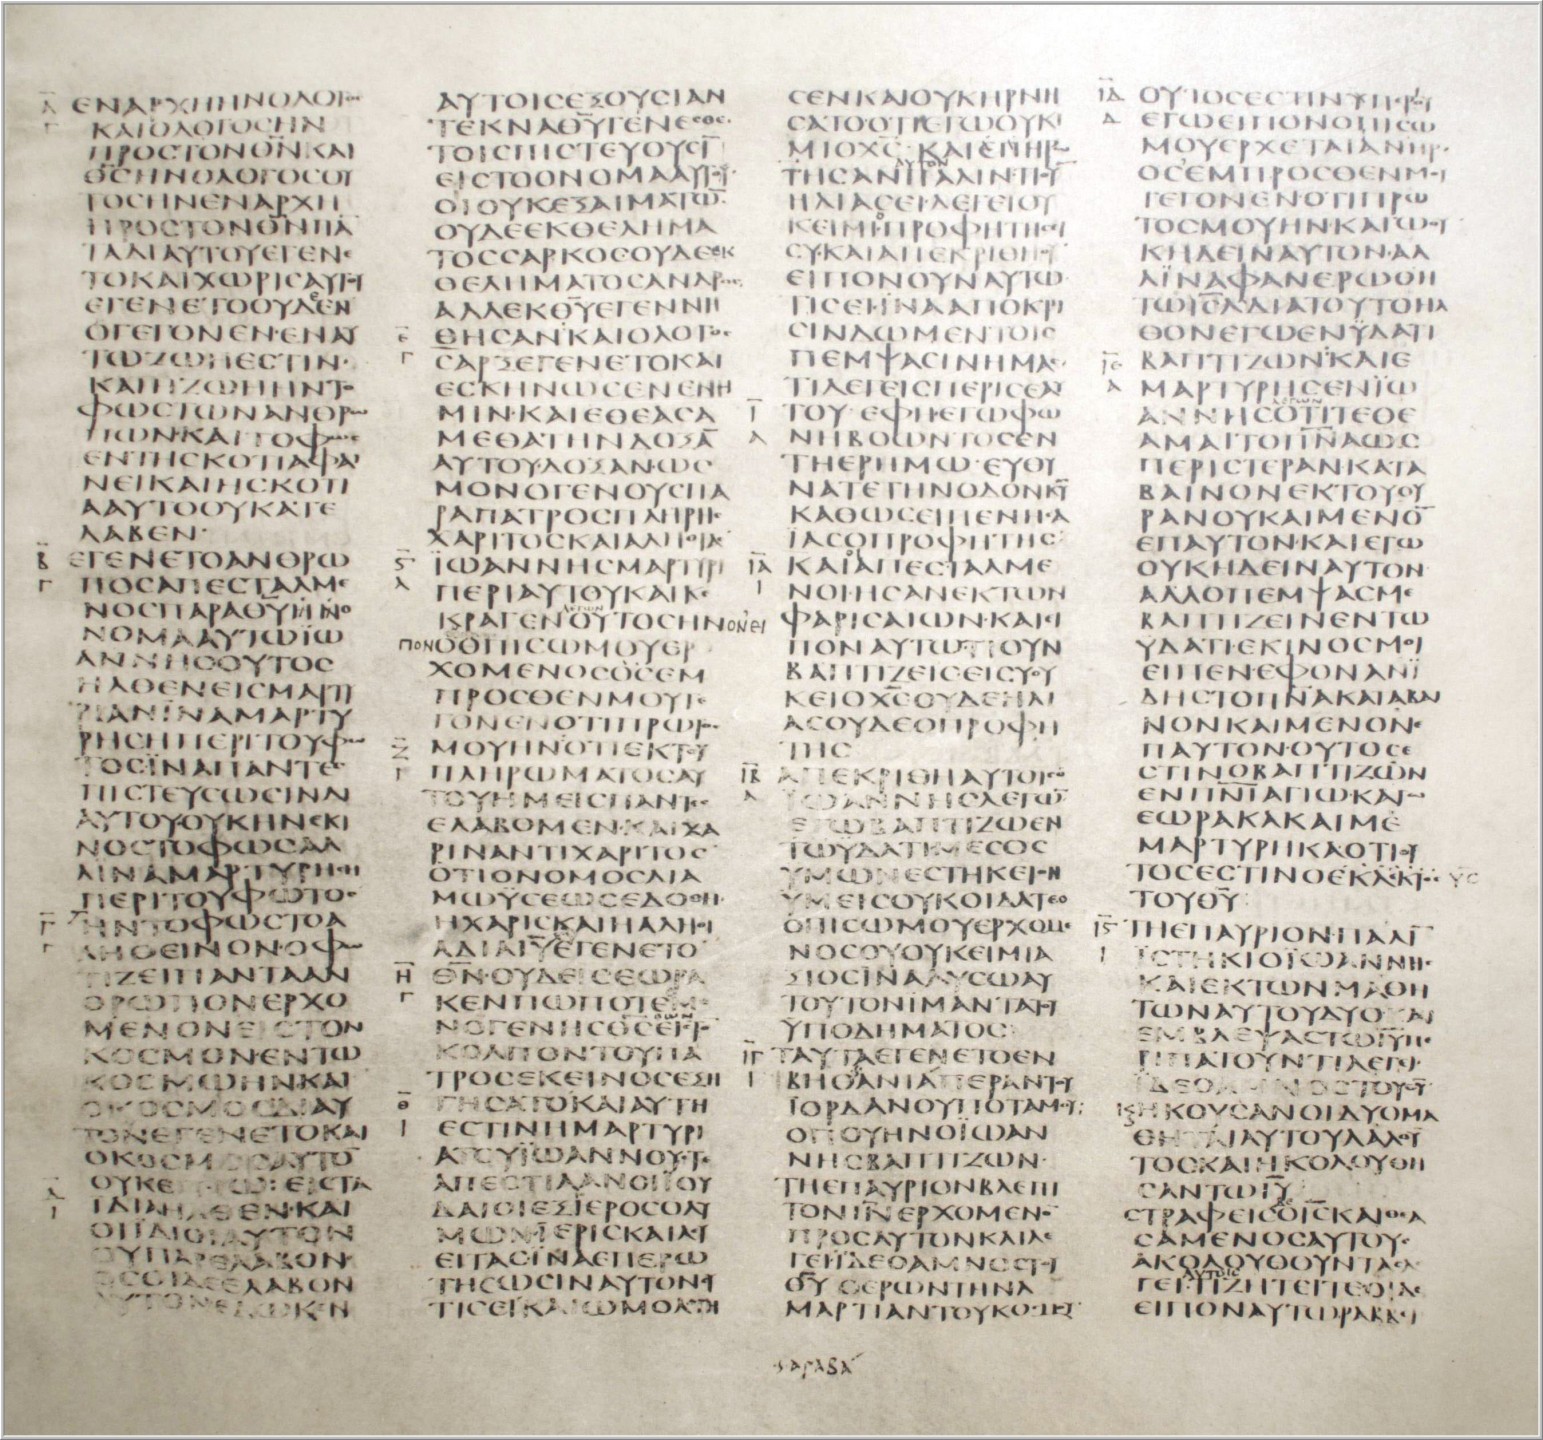 ΕΝΑΡΧΗΗΝΟΛΟΓΟϹ
ΚΑΙΟΛΟΓΟϹΗΝ
ΠΡΟϹΤΟΝΘΝΚΑΙ
ΘϹΗΝΟΛΟΓΟϹΟΥ
ΤΟϹΗΝΕΝΑΡΧΗ
ΠΡΟϹΤΟΝΘΝΠΑ
ΤΑΔΙΑΥΤΟΥΕΓΕΝΕ
ΤΟΚΑΙΧΩΡΙϹΑΥΤΟΥ
ΕΓΕΝΕΤΟΟΥΔΕΝ
ΟΓΕΓΟΝΕΝ·ΕΝΑΥ
ΤΩΖΩΗΕϹΤΙΝ·
ΚΑΙΗΖΩΗΗΝΤΟ
ΦΩϹΤΩΝΑΝΘΡΩ
ΠΩΝ·ΚΑΙΤΟΦΩϹ
ΕΝΤΗϹΚΟΤΙΑΦΑΙ
ΝΕΙΚΑΙΗϹΚΟΤΙ
ΑΑΥΤΟΟΥΚΑΤΕ
ΛΑΒΕΝ·
ΕΓΕΝΕΤΟΑΝΘΡΩ
ΠΟϹΑΠΕϹΤΑΛΜΕ
ΝΟϹΠΑΡΑΘΥΗΝΟ
ΝΟΜΑΑΥΤΩΪΩ
ΑΝΝΗϹΟΥΤΟϹ
ΗΛΘΕΝΕΙϹΜΑΡΤΥ
ΡΙΑΝΪΝΑΜΑΡΤΥ
ΡΗϹΗΠΕΡΙΤΟΥΦΩ
ΤΟϹΪΝΑΠΑΝΤΕϹ
ΠΙϹΤΕΥϹΩϹΙΝΔΙ
ΑΥΤΟΥΟΥΚΗΝΕΚΙ
ΝΟϹΤΟΦΩϹΑΛ
ΛΙΝΑΜΑΡΤΥΡΗϹΗ
ΠΕΡΙΤΟΥΦΩΤΟϹ
ΗΝΤΟΦΩϹΤΟΑ
ΛΗΘΕΙΝΟΝ·ΟΦΩ
ΤΙΖΕΙΠΑΝΤΑΑΝ
ΘΡΩΠΟΝΕΡΧΟ
ΜΕΝΟΝΕΙϹΤΟΝ
ΚΟϹΜΟΝΕΝΤΩ
ΚΟϹΜΩΗΝΚΑΙ
ΟΚΟϹΜΟϹΔΙΑΥ
ΤΟΝΕΓΕΝΕΤΟΚΑΙ
ΟΚΟϹΜΟϹΑΥΤΟ
ΟΥΚΕΓΝΩ·ΕΙϹΤΑ
ΪΔΙΑΗΛΘΕΝ·ΚΑΙ
ΟΙΪΔΙΟΙΑΥΤΟΝ
ΟΥΠΑΡΕΛΑΒΟΝ·
ΟϹΟΙΔΕΕΛΑΒΟΝ
ΑΥΤΟΝΕΔΩΚΕΝ
ΑΥΤΟΙϹΕΞΟΥϹΙΑΝ
ΤΕΚΝΑΘΥΓΕΝΕϹΘΑΙ
ΤΟΙϹΠΙϹΤΕΥΟΥϹΙ
ΕΙϹΤΟΟΝΟΜΑΑΥΤΟΥ
ΟΙΟΥΚΕΞΑΙΜΑΤΩ
ΟΥΔΕΕΚΘΕΛΗΜΑ
ΤΟϹϹΑΡΚΟϹΟΥΔΕΕΚ
ΘΕΛΗΜΑΤΟϹΑΝΔΡΟϹ
ΑΛΛΕΚΘΥΕΓΕΝΝΗ
ΘΗϹΑΝΚΑΙΟΛΟΓΟϹ
ϹΑΡΞΕΓΕΝΕΤΟΚΑΙ
ΕϹΚΗΝΩϹΕΝΕΝΗ
ΜΙΝ·ΚΑΙΕΘΕΑϹΑ
ΜΕΘΑΤΗΝΔΟΞΑ
ΑΥΤΟΥΔΟΞΑΝΩϹ
ΜΟΝΟΓΕΝΟΥϹΠΑ
ΡΑΠΑΤΡΟϹΠΛΗΡΗϹ
ΧΑΡΙΤΟϹΚΑΙΑΛΗΘΙΑϹ
ΪΩΑΝΝΗϹΜΑΡΤΥΡΙ
ΠΕΡΙΑΥΤΟΥΚΑΙΚΕ
ΚΡΑΓΕΝΛΕΓΩΝΟΥΤΟϹΗΝΟΝΕΙ
ΠΟΝΟΟΠΙϹΩΜΟΥΕΡ
ΧΟΜΕΝΟϹΟϹΕΜ
ΠΡΟϹΘΕΝΜΟΥΓΕ
ΓΟΝΕΝΟΤΙΠΡΩΤΟϹ
ΜΟΥΗΝΟΤΙΕΚΤΟΥ
ΠΛΗΡΩΜΑΤΟϹΑΥ
ΤΟΥΗΜΕΙϹΠΑΝΤΕϹ
ΕΛΑΒΟΜΕΝ·ΚΑΙΧΑ
ΡΙΝΑΝΤΙΧΑΡΙΤΟϹ
ΟΤΙΟΝΟΜΟϹΔΙΑ
ΜΩΫϹΕΩϹΕΔΟΘΗ
ΗΧΑΡΙϹΚΑΙΗΑΛΗΘΙ
ΑΔΙΑΙΥΕΓΕΝΕΤΟ
ΘΝ·ΟΥΔΕΙϹΕΩΡΑ
ΚΕΝΠΩΠΟΤΕΜΟ
ΝΟΓΕΝΗϹΘϹΕΙϹΤΟΝ
ΚΟΛΠΟΝΤΟΥΠΑ
ΤΡΟϹΕΚΕΙΝΟϹΕΞΗ
ΓΗϹΑΤΟΚΑΙΑΥΤΗ
ΕϹΤΙΝΗΜΑΡΤΥΡΙ
ΑΤΟΥΪΩΑΝΝΟΥΟΤΕ
ΑΠΕϹΤΙΛΑΝΟΙΪΟΥ
ΔΑΙΟΙΕΞΪΕΡΟϹΟΛΥ
ΜΩΝΪΕΡΙϹΚΑΙΛΕΥ
ΕΙΤΑϹΙΝΑΕΠΕΡΩ
ΤΗϹΩϹΙΝΑΥΤΟΝϹΥ
ΤΙϹΕΙΚΑΙΩΜΟΛΟΓΗ
ϹΕΝΚΑΙΟΥΚΗΡΝΗ
ϹΑΤΟΟΤΙΕΓΩΟΥΚΙ
ΜΙΟΧϹΚΑΙΕΠΗΡΩ
ΤΗϹΑΝΑΥΤΟΝΠΑΛΙΝΤΙϹΥ
ΗΛΙΑϹΕΙΛΕΓΕΙΟΥ
ΚΕΙΜΙΠΡΟΦΗΤΗϹΕΙ
ϹΥ·ΚΑΙΑΠΕΚΡΙΘΗΟΥ
ΕΙΠΟΝΟΥΝΑΥΤΩ
ΤΙϹΕΙΪΝΑΑΠΟΚΡΙ
ϹΙΝΔΩΜΕΝΤΟΙϹ
ΠΕΜΨΑϹΙΝΗΜΑϹ
ΤΙΛΕΓΕΙϹΠΕΡΙϹΕΑΥ
ΤΟΥ·ΕΦΗΕΓΩΦΩ
ΝΗΒΟΩΝΤΟϹΕΝ
ΤΗΕΡΗΜΩ·ΕΥΘΥ
ΝΑΤΕΤΗΝΟΔΟΝΚΥ
ΚΑΘΩϹΕΙΠΕΝΗϹΑ
ΪΑϹΟΠΡΟΦΗΤΗϹ
ΚΑΙΑΠΕϹΤΑΛΜΕ
ΝΟΙΗϹΑΝΕΚΤΩΝ
ΦΑΡΙϹΑΙΩΝ·ΚΑΙΕΙ
ΠΟΝΑΥΤΩΤΙΟΥΝ
ΒΑΠΤΙΖΕΙϹΕΙϹΥΟΥ
ΚΕΙΟΧϹΟΥΔΕΗΛΙ
ΑϹΟΥΔΕΟΠΡΟΦΗ
ΤΗϹ
ΑΠΕΚΡΙΘΗΑΥΤΟΙϹΟ
ΪΩΑΝΝΗϹΛΕΓΩ
ΕΓΩΒΑΠΤΙΖΩΕΝ
ΤΩΫΔΑΤΙΜΕϹΟϹ
ΥΜΩΝΕϹΤΗΚΕΙΟΝ
ΥΜΕΙϹΟΥΚΟΙΔΑΤΕΟ
ΟΠΙϹΩΜΟΥΕΡΧΟΜΕ
ΝΟϹΟΥΟΥΚΕΙΜΙΑ
ΞΙΟϹΪΝΑΛΥϹΩΑΥ
ΤΟΥΤΟΝΪΜΑΝΤΑΤΟΥ
ΥΠΟΔΗΜΑΤΟϹ
ΤΑΥΤΑΕΓΕΝΕΤΟΕΝ
ΒΗΘΑΝΙΑΠΕΡΑΝΤΟΥ
ΪΟΡΔΑΝΟΥΠΟΤΑΜΟΥ
ΟΠΟΥΗΝΟΪΩΑΝ
ΝΗϹΒΑΠΤΙΖΩΝ·
ΤΗΕΠΑΥΡΙΟΝΒΛΕΠΙ
ΤΟΝΙΝΕΡΧΟΜΕΝΟ
ΠΡΟϹΑΥΤΟΝΚΑΙΛΕ
ΓΕΙΪΔΕΟΑΜΝΟϹΤΟΥ
ΘΥΟΕΡΩΝΤΗΝΑ
ΜΑΡΤΙΑΝΤΟΥΚΟϹΜΟΥ
ΟΥΤΟϹΕϹΤΙΝΥΠΕΡΟΥ
ΕΓΩΕΙΠΟΝΟΠΙϹΩ
ΜΟΥΕΡΧΕΤΑΙΑΝΗΡ
ΟϹΕΜΠΡΟϹΘΕΝΜΟΥ
ΓΕΓΟΝΕΝΟΤΙΠΡΩ
ΤΟϹΜΟΥΗΝΚΑΓΩΟΥ
ΚΗΔΕΙΝΑΥΤΟΝ·ΑΛ
ΛΪΝΑΦΑΝΕΡΩΘΗ
ΤΩΙϹΛΔΙΑΤΟΥΤΟΗΛ
ΘΟΝΕΓΩΕΝΫΔΑΤΙ
ΒΑΠΤΙΖΩΝΚΑΙΕ
ΜΑΡΤΥΡΗϹΕΝΪΩ
ΑΝΝΗϹΛΕΓΩΝΟΤΙΤΕΘΕ
ΑΜΑΙΤΟΠΝΑΩϹ
ΠΕΡΙϹΤΕΡΑΝΚΑΤΑ
ΒΑΙΝΟΝΕΚΤΟΥΟΥ
ΡΑΝΟΥΚΑΙΜΕΝΟ
ΕΠΑΥΤΟΝ·ΚΑΙΕΓΩ
ΟΥΚΗΔΕΙΝΑΥΤΟΝ
ΑΛΛΟΠΕΜΨΑϹΜΕ
ΒΑΠΤΙΖΕΙΝΕΝΤΩ
ΥΔΑΤΙ·ΕΚΙΝΟϹΜΟΙ
ΕΙΠΕΝ·ΕΦΟΝΑΝΪ
ΔΗϹΤΟΠΝΑΚΑΤΑΒΑΙ
ΝΟΝΚΑΙΜΕΝΟΝΕ
ΠΑΥΤΟΝ·ΟΥΤΟϹΕ
ϹΤΙΝΟΒΑΠΤΙΖΩΝ
ΕΝΠΝΙΑΓΙΩΚΑΓΩ
ΕΩΡΑΚΑΚΑΙΜΕ
ΜΑΡΤΥΡΗΚΑΟΤΙΟΥ
ΤΟϹΕϹΤΙΝΟΕΚΛΕΚΤΟϹ ΥϹ
ΤΟΥΘΥ
ΤΗΕΠΑΥΡΙΟΝ·ΠΑΛΙ
ΪϹΤΗΚΙΟΪΩΑΝΝΗϹ
ΚΑΙΕΚΤΩΝΜΑΘΗ
ΤΩΝΑΥΤΟΥΔΥΟΚΑΙ
ΕΜΒΛΕΨΑϹΤΩΙΥΠΕ
ΡΙΠΑΤΟΥΝΤΙΛΕΓΕΙ
ΪΔΕΟΑΜΝΟϹΤΟΥΘΥ
ΗΚΟΥϹΑΝΟΙΔΥΟΜΑ
ΘΗΤΑΙΑΥΤΟΥΛΑΛΟΥ
ΤΟϹΚΑΙΗΚΟΛΟΥΘΗ
ϹΑΝΤΩΙΥ
ϹΤΡΑΦΕΙϹΟΙϹΚΑΙΘΕΑ
ϹΑΜΕΝΟϹΑΥΤΟΥϹ
ΑΚΟΛΟΥΘΟΥΝΤΑϹΛΕ
ΓΕΙΑΥΤΟΙϹΤΙΖΗΤΕΙΤΕΟΙΔΕ
ΕΙΠΟΝΑΥΤΩΡΑΒΒΙ